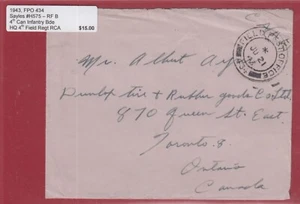 1943, FPO 434
Sayles #H575 – RF B
4th Can Infantry Bde
HQ 4th Field Regt RCA
$15.00
Mr. Albert
Dunlop tire & Rubber goods Co Ltd
870 Queen St. East,
Toronto. 8
Ontario
Canada